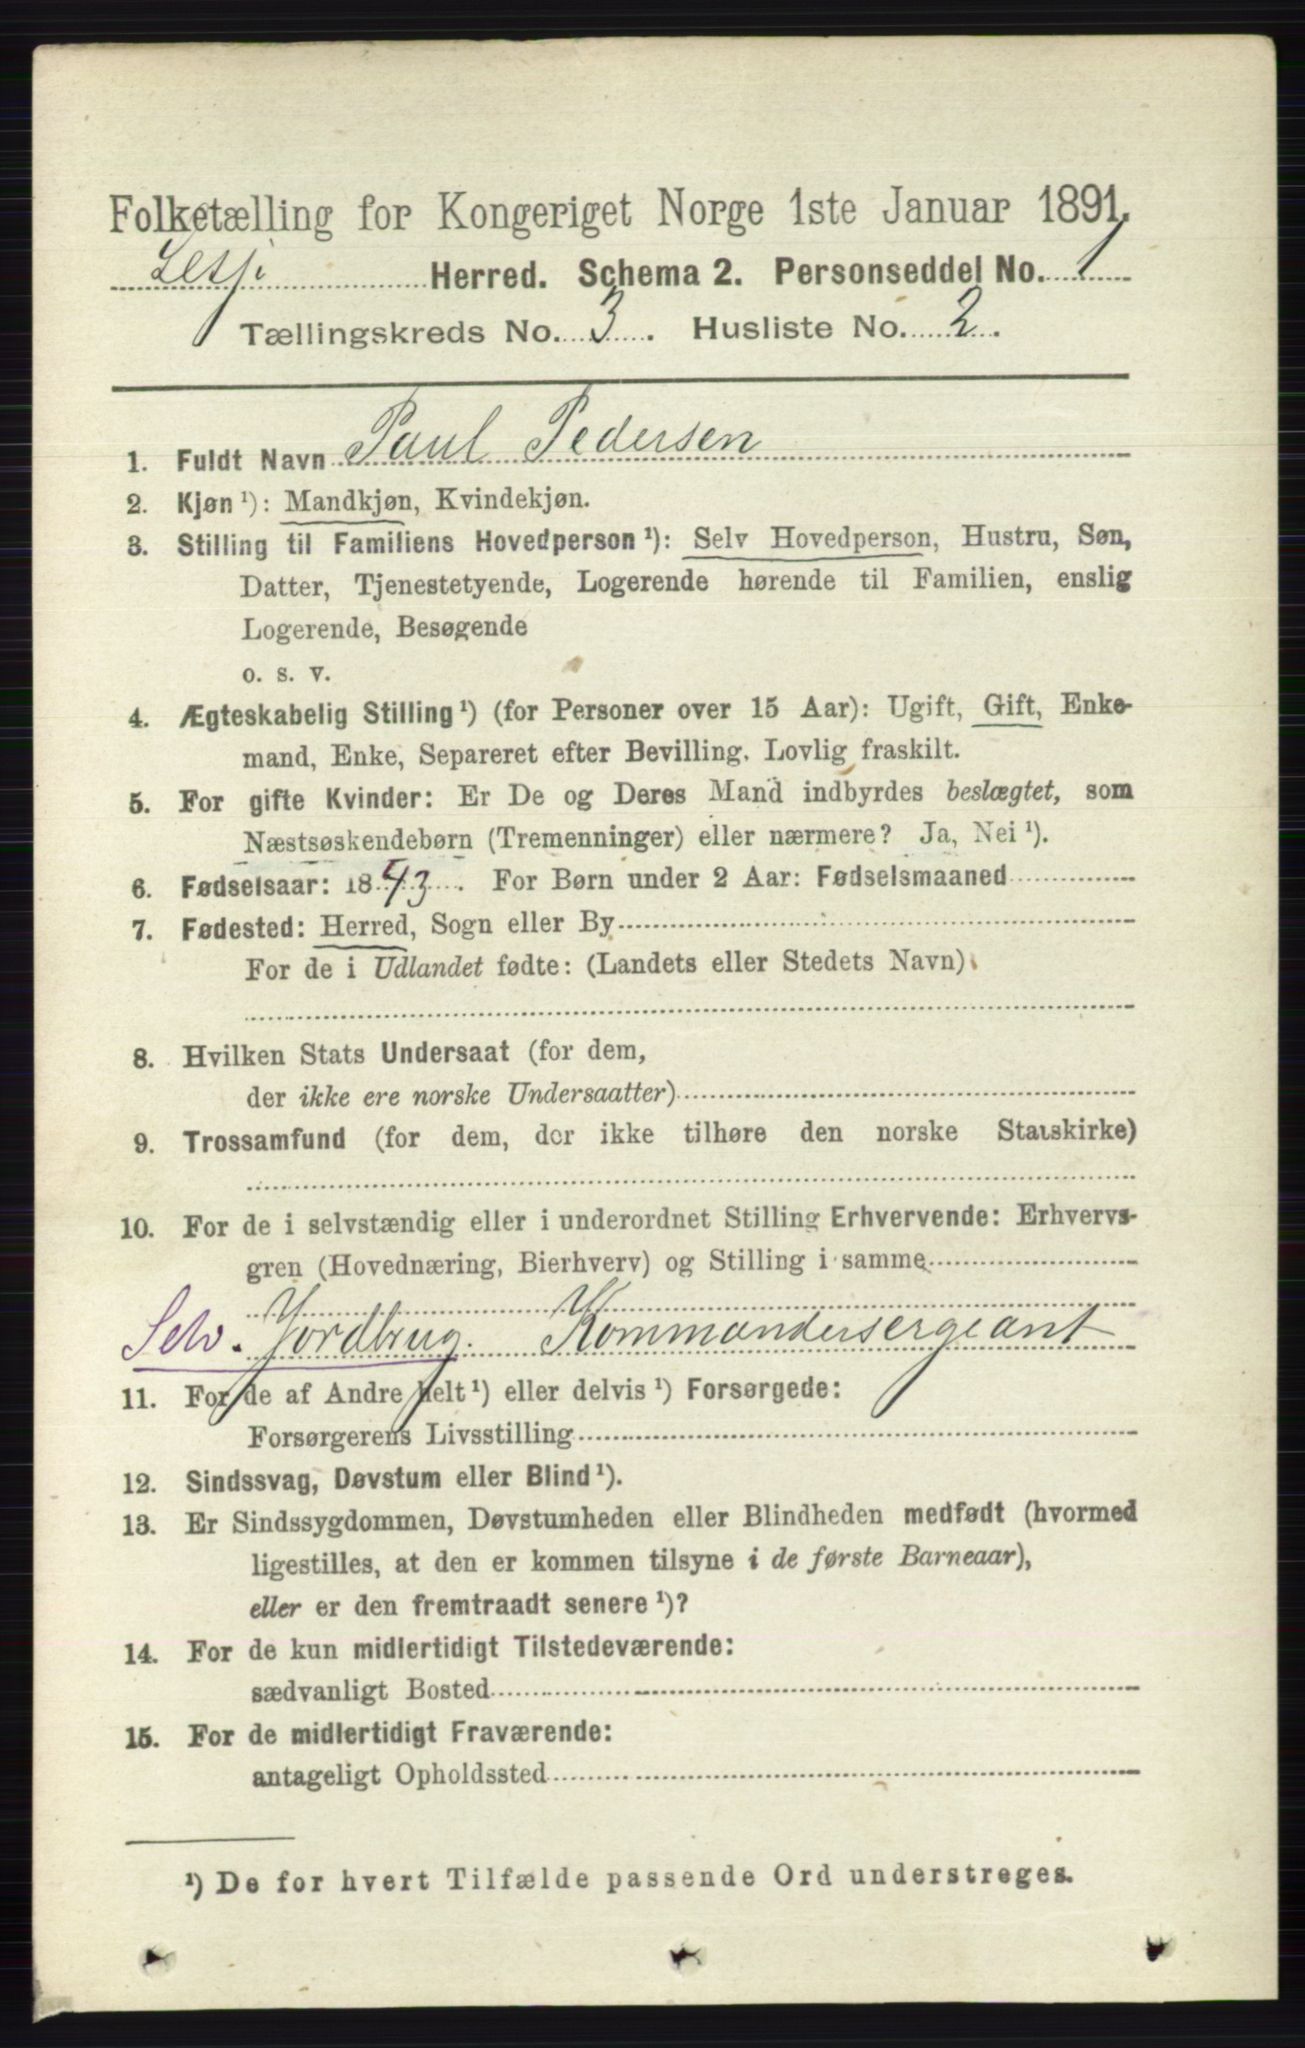 Folketælling for Kongeriget Norge 1ste Januar 1891.
Lesje Herred. Schema 2. Personseddel No. 1
Tællingskreds No. 3. Husliste No. 2.
1. Fuldt Navn Paul Pedersen
2. Kjøn ¹): Mandkjøn, Kvindekjøn.
3. Stilling til Familiens Hovedperson ¹): Selv Hovedperson, Hustru, Søn,
Datter, Tjenestetyende, Logerende hørende til Familien, enslig
Logerende, Besøgende
o. s. v.
4. Ægteskabelig Stilling ¹) (for Personer over 15 Aar): Ugift, Gift, Enke-
mand, Enke, Separeret efter Bevilling. Lovlig fraskilt.
5. For gifte Kvinder: Er De og Deres Mand indbyrdes beslægtet, som
Næstsøskendebørn (Tremenninger) eller nærmere? Ja, Nei ¹).
6. Fødselsaar: 1843. For Børn under 2 Aar: Fødselsmaaned
7. Fødested: Herred, Sogn eller By
For de i Udlandet fødte: (Landets eller Stedets Navn)
8. Hvilken Stats Undersaat (for dem,
der ikke ere norske Undersaatter)
9. Trossamfund (for dem, der ikke tilhøre den norske Statskirke)
10. For de i selvstændig eller i underordnet Stilling Erhvervende: Erhvervs-
gren (Hovednæring, Bierhverv) og Stilling i samme
Selv. Jordbrug. Kommandersergeant
11. For de af Andre helt ¹) eller delvis ¹) Forsørgede:
Forsørgerens Livsstilling
12. Sindssvag, Døvstum eller Blind ¹).
13. Er Sindssygdommen, Døvstumheden eller Blindheden medfødt (hvormed
ligestilles, at den er kommen tilsyne i de første Barneaar),
eller er den fremtraadt senere ¹)?
14. For de kun midlertidigt Tilstedeværende:
sædvanligt Bosted
15. For de midlertidigt Fraværende:
antageligt Opholdssted
¹) De for hvert Tilfælde passende Ord understreges.